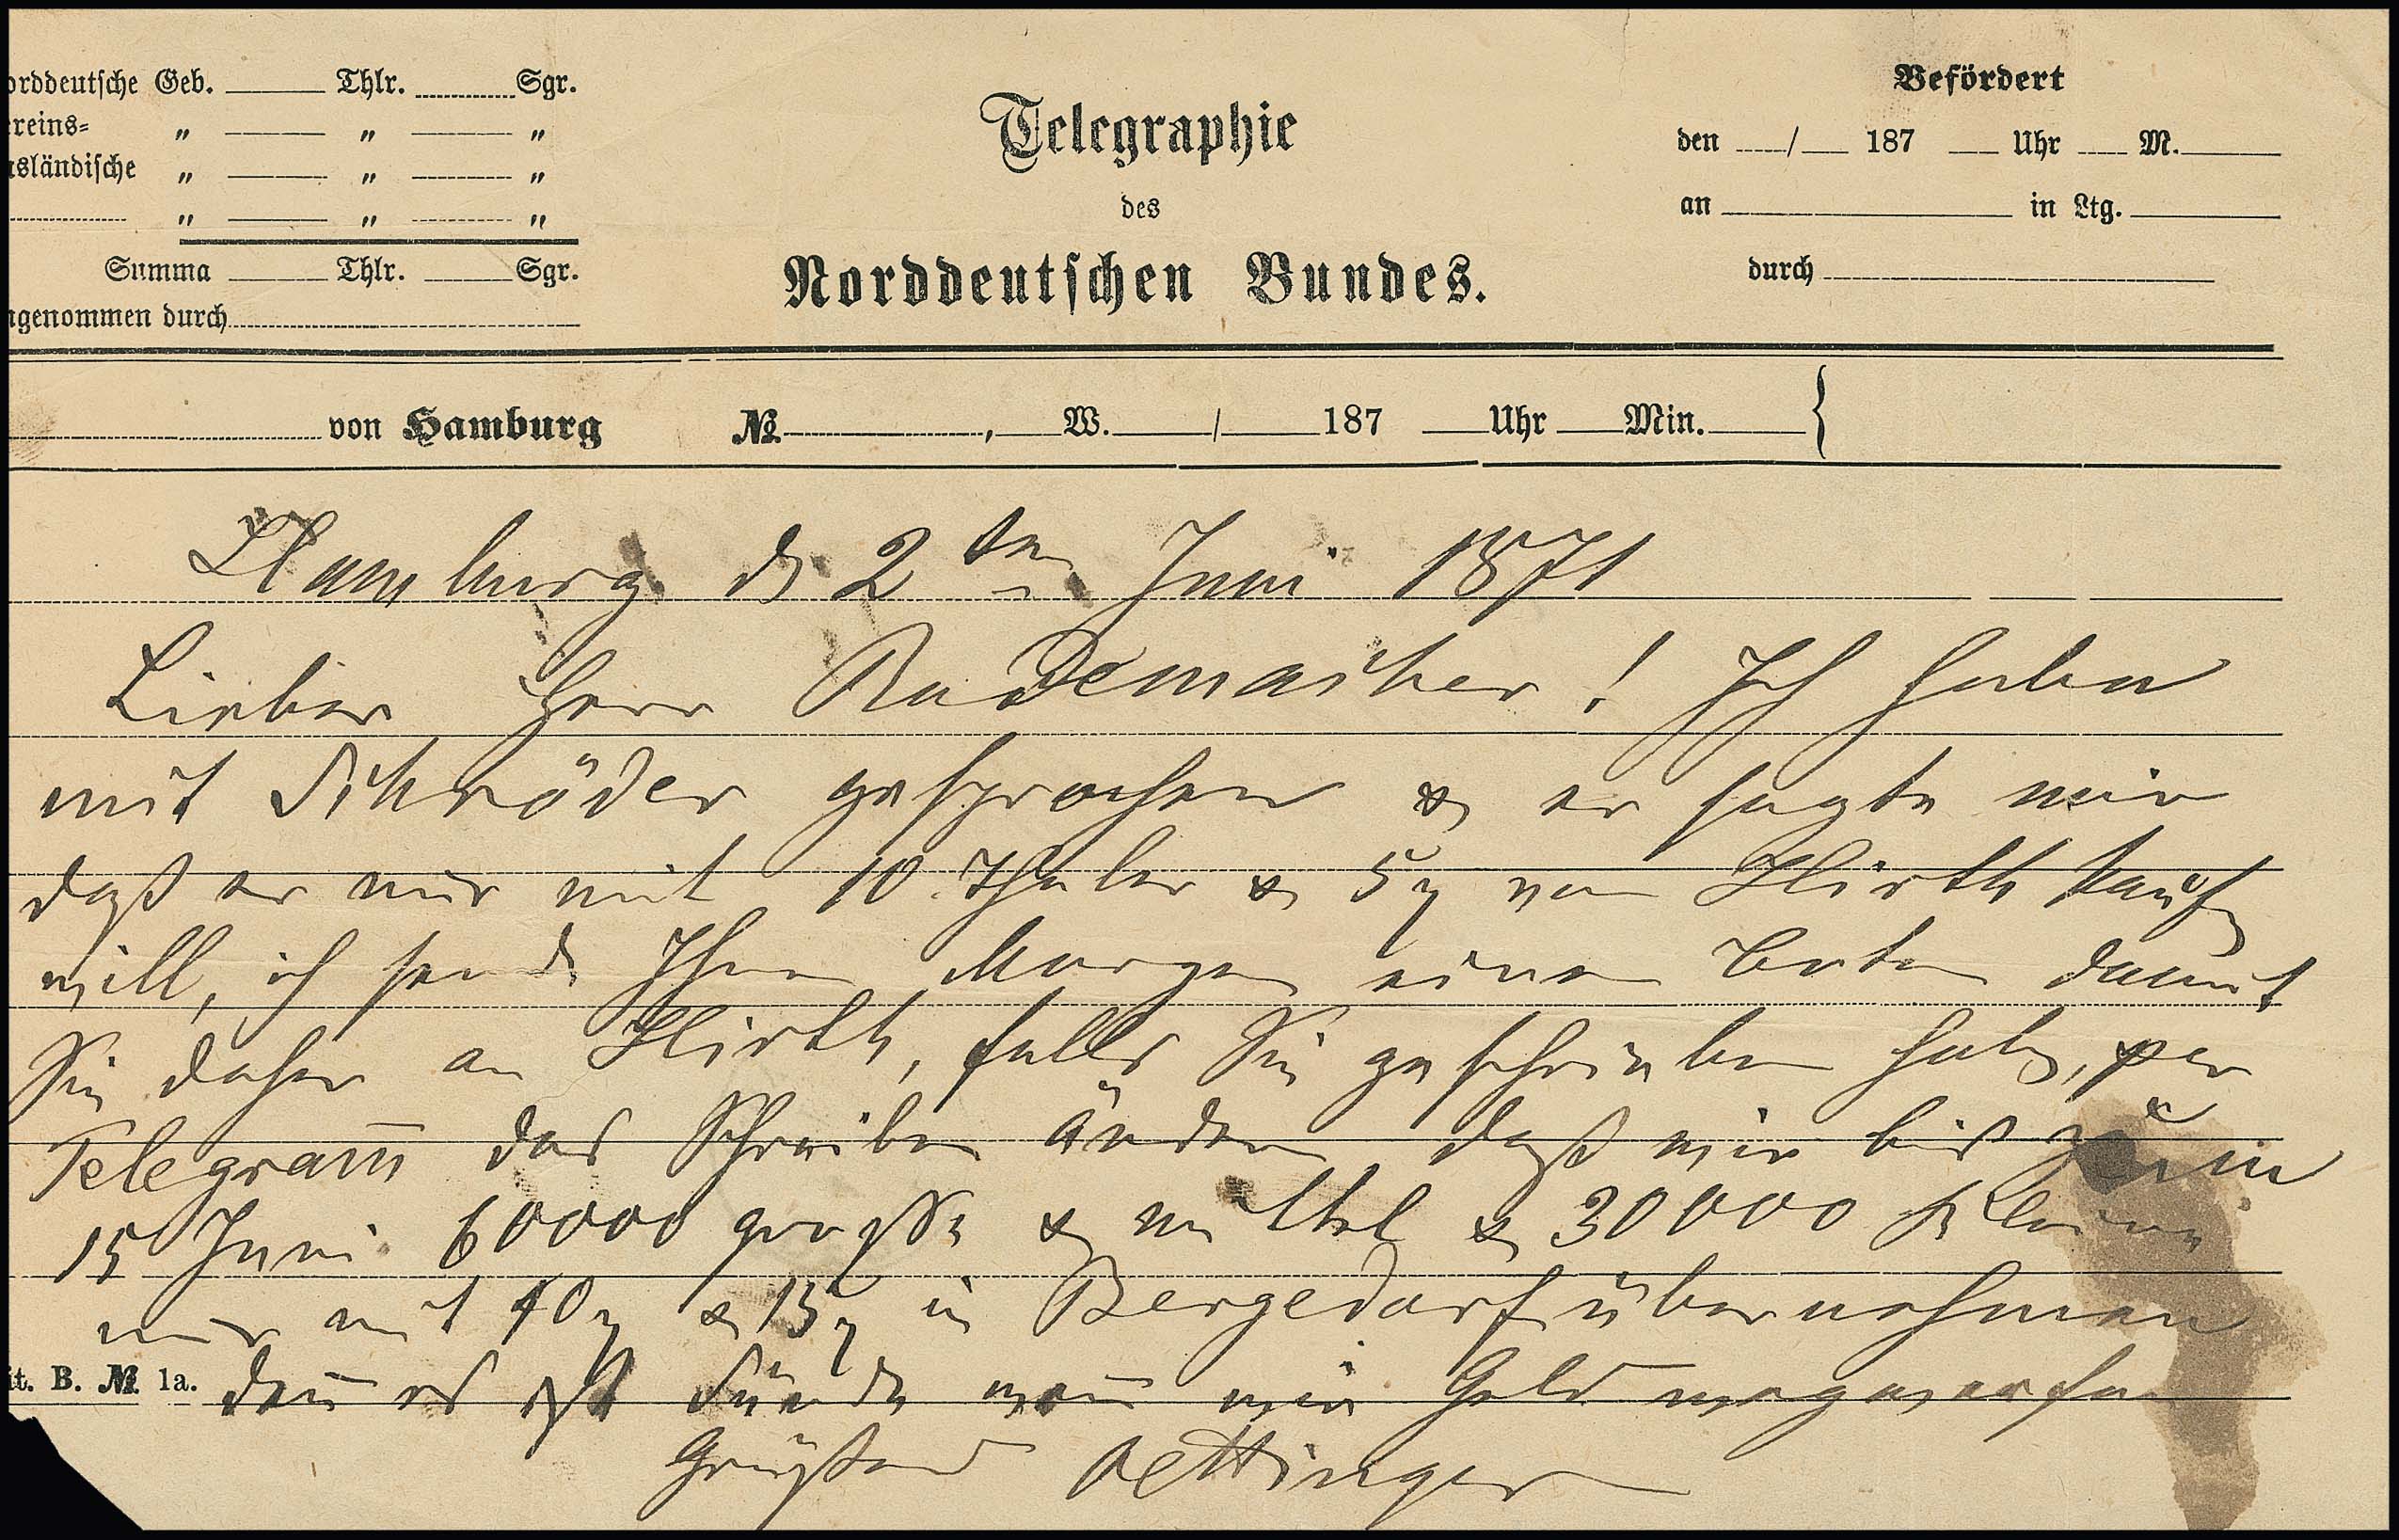 orddeutsche Geb. Thlr. Sgr.
ereins= " " "
usländische " " "
" " "
Summa Thlr. Sgr.
ngenommen durch
Telegraphie
des
Norddeutschen Bundes.
Befördert
den / 187 Uhr M.
an in Ltg.
durch
von Hamburg №. , W. / 187 Uhr Min. {
Hamburg d 2ten Juni 1871
Lieber Herr Rademacher! Ich habe
mit Schröder gesprochen & er sagte mir
daß er nur mit 10 Thaler & 5 von Hirth kaufen
will, ich sende Ihnen Morgen einen Boten damit
Sie daher an Hirth, falls Sie geschrieben haben, per
Telegram̅ das Schreiben ändern daß wir bis zum
15 Juni 60000 große & mittel & 30000 kleine
nur mit 10 & 15 in Bergedorf übernehmen
den̅ es ist Sünde wen̅ wir Geld wegwerfen
it. B. №. 1a.
Grüßend Oettinger